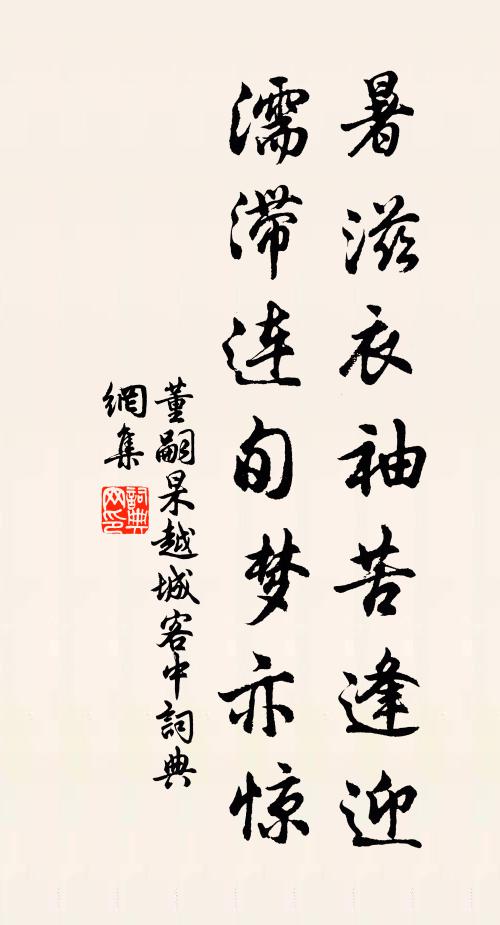 暑滋衣袖苦逢迎
濡滞连旬梦亦惊
董嗣杲越城客中詞典
網集
詞典
网印